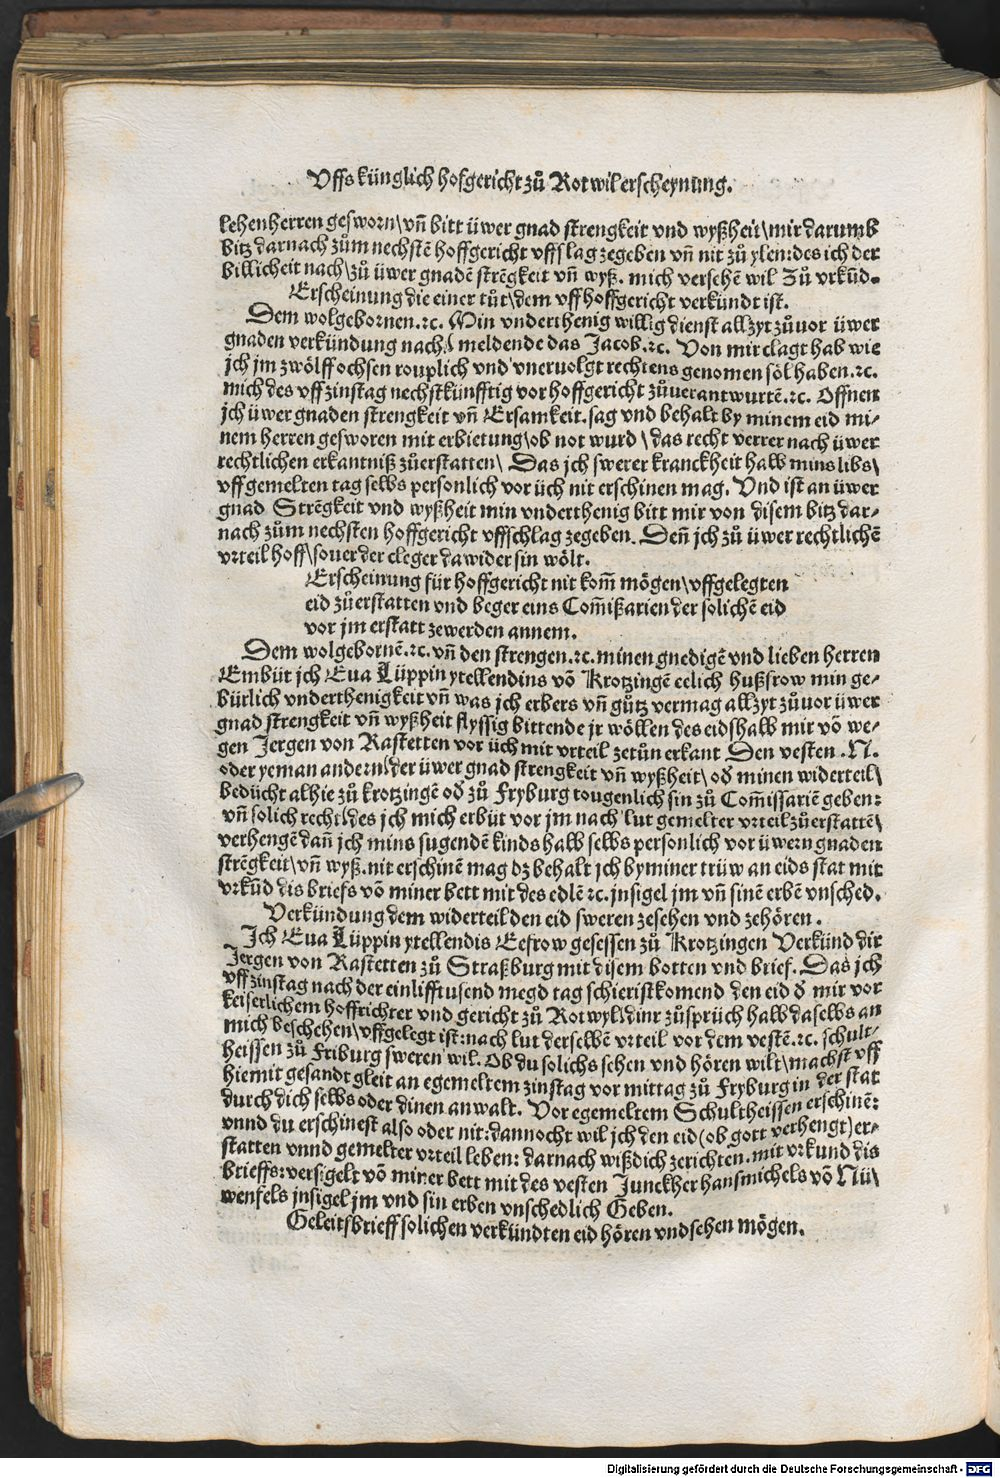 Uffs künglich hofgericht zů Rotwil erscheynung.
lehenherren gesworn\ vñ bitt üwer gnad strengkeit vnd wyßheit\ mir darumb
bitz darnach zům nechstẽ hoffgericht vffslag zegeben vñ nit zů ylen: des ich der
billicheit nach\ zů üwer gnadẽ strẽgkeit vñ wyß. mich versehẽ wil Zů vrkũd.
Erscheinung die einer tůt\ dem vff hoffgericht verkündt ist.
Dem wolgebornen.⁊c. Min vnderthenig willig dienst allzyt zůuor üwer
gnaden verkündung nach\ meldende das Jacob.⁊c. Von mir clagt hab wie
jch jm zwölff ochsen rouplich vnd vneruolgt rechtens genomen söl haben.⁊c.
mich des vff zinstag nechstkünfftig vor hoffgericht zůuerantwurtẽ.⁊c. Offnen
jch üwer gnaden strengkeit vñ Ersamkeit. sag vnd behalt by minem eid mi⸗
nem herren gesworen mit erbietung\ ob not wurd \ das recht verrer nach üwer
rechtlichen erkantniß zůerstatten\ Das jch swerer kranckheit halb mins libs\
vff gemelten tag selbs personlich vor üch nit erschinen mag. Vnd ist an üwer
gnad Strẽgkeit vnd wyßheit min vnderthenig bitt mir von disem bitz dar⸗
nach zům nechsten hoffgericht vffschlag zegeben. Deñ jch zů üwer rechtlichẽ
vrteil hoff\ souer der cleger da wider sin wölt.
Erscheinung für hoffgericht nit kom̃ mögen\ vffgelegten
eid zůerstatten vnd beger eins Com̃ißarien der solichẽ eid
vor jm erstatt zewerden annem.
Dem wolgebornẽ.⁊c. vñ den strengen.⁊c. minen gnedigẽ vnd lieben herren
Embüt jch Eua Lüppin ytellendins võ Krotzingẽ eelich hußfrow min ge⸗
bürlich vnderthenigkeit vñ was jch erbers vñ gůtz vermag allzyt zůuor üwer
gnad strengkeit vñ wyßheit flyssig bittende jr wöllen des eidshalb mir võ we⸗
gen Jergen von Rastetten vor üch mit vrteil zetůn erkant Den vesten .N.
oder yeman andern\ der üwer gnad strengkeit vñ wyßheit\ ođ minen widerteil\
bedücht alhie zů krotzingẽ ođ zů Fryburg tougenlich sin zů Com̃issariẽ geben:
vñ solich recht\ des jch mich erbüt vor jm nach lut gemelter vrteil zůerstattẽ\
verhengẽ dañ jch mins sugendẽ kinds halb selbs personlich vor üwern gnaden
strẽgkeit\ vñ wyß. nit erschinẽ mag dz behalt jch by miner trüw an eids stat mit
vrkũd dis briefs võ miner bett mit des edlẽ ⁊c. jnsigel jm vñ sinẽ erbẽ vnsched.
Verkündung dem widerteil den eid sweren zesehen vnd zehören .
Ich Eua Lüppin ytellendis Eefrow gesessen zů Krotzingen Verkünd dir
Jergen von Rastetten zů Straßburg mit disem botten vnd brief. Das jch
vff zinstag nach der einlifftusend megd tag schierist komend den eid đ mir vor
keiserlichem hoffrichter vnd gericht zů Rotwyl\ diner zůsprüch halb daselbs an
mich beschehen\ vffgelegt ist: nach lut derselbẽ vrteil vor dem vestẽ.⁊c. schult⸗
heissen zů Friburg sweren wil. Ob du solichs sehen vnd hören wilt\ machst vff
hiemit gesandt gleit an egemeltem zinstag vor mittag zů Fryburg in der stat
durch dich selbs oder dinen anwalt. Vor egemeltem Schultheissen erschinẽ:
vnnd du erschinest also oder nit: dannocht wil jch den eid (ob gott verhengt) er⸗
statten vnnd gemelter vrteil leben: darnach wiß dich zerichten. mit vrkund dis
brieffs: versigelt võ miner bett mit des vesten Junckher hansmichels võ Nü\
wenfels jnsigel jm vnd sin erben vnschedlich Geben.
Geleitsbrieff solichen verkündten eid hören vnd sehen mögen.
Digitalisierung gefördert durch die Deutsche Forschungsgemeinschaft - DFG